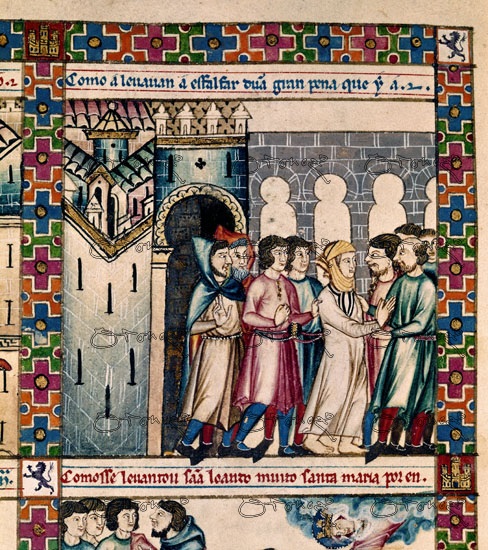 Como a levavan a essalfar dũa gran pena que ý a.
Comosse levantou sãa loando muito santa maria por en.